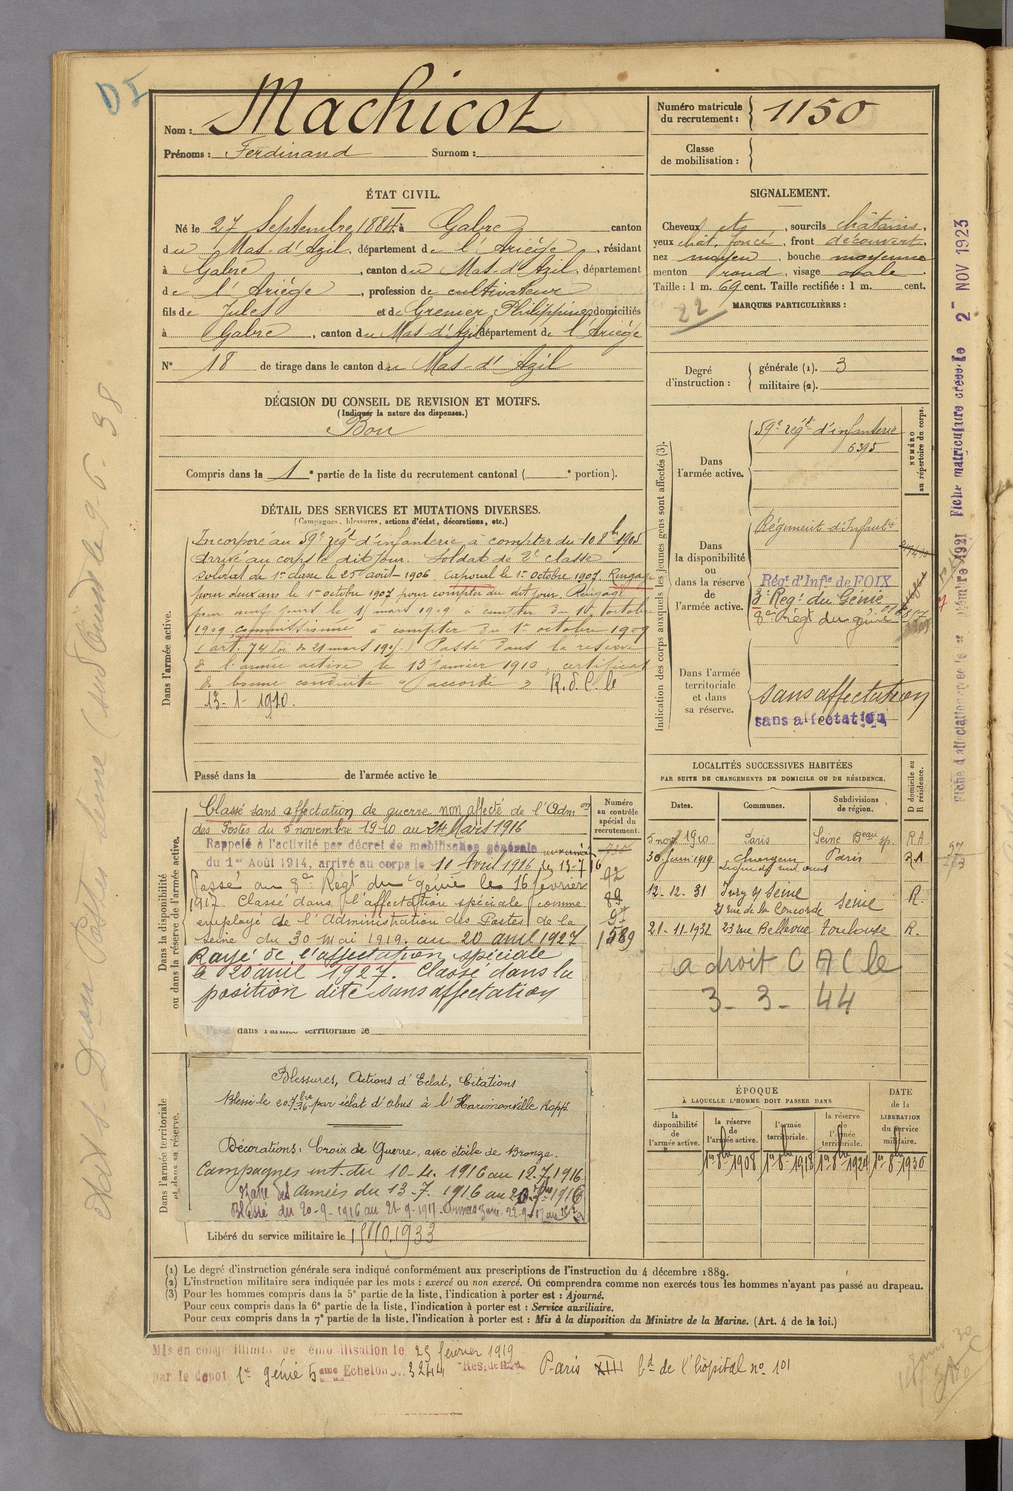 DI
Nom : Machicot
Prénoms : Ferdinand Surnom :
Numéro matricule du recrutement : 1150
Classe de mobilisation :
ÉTAT CIVIL.
Né le 27 Septembre 1884 à Gabre canton
du Mas-d'Azil, département de l'Ariège, résidant
à Gabre, canton du Mas-d'Azil, département
de l'Ariège, profession de cultivateur
fils de Jules et de Grenier Philippine domiciliés
à Gabre, canton du Mas d'Azil département de l'Ariège
N° 18 de tirage dans le canton du Mas-d'Azil
SIGNALEMENT.
Cheveux et, sourcils châtains,
yeux chât. foncé, front découvert,
nez moyen, bouche moyenne
menton rond, visage ovale
Taille : 1 m. 69 cent. Taille rectifiée : 1 m. cent.
MARQUES PARTICULIÈRES :
22
Degré d'instruction : générale (1). 3
militaire (2).
DÉCISION DU CONSEIL DE REVISION ET MOTIFS.
(Indiquer la nature des dispenses.)
Bon
Compris dans la 1e partie de la liste du recrutement cantonal ( e portion).
DÉTAIL DES SERVICES ET MUTATIONS DIVERSES.
(Campagnes, blessures, actions d'éclat, décorations, etc.)
Dans l'armée active.
Incorporé au 59e rég.t d'infanterie à compter du 10 8bre 1905
Arrivé au corps le dit jour. Soldat de 2e classe
Soldat de 1re classe le 25 août 1906. Caporal le 1er octobre 1907. Rengagé
pour deux ans le 1er octobre 1907 pour compter du dit jour. Rengagé
1909, commissionné à compter du 1er octobre 1909
Passé dans la réserve
de l'armée active le 13 janvier 1910, certificat
de bonne conduite "accordé" R.d.C. le
13-1-1910.
Passé dans la de l'armée active le
Indication des corps auxquels les jeunes gens sont affectés (3).
NUMÉRO au répertoire du corps.
Dans l'armée active.
59e rég.t d'infanterie
6395
Dans la disponibilité ou dans la réserve de l'armée active.
Régiment d'Infant.ie
Rég.t d'Inf.ie de FOIX
3e Reg.t du Génie
8e Régt du génie
Dans l'armée territoriale et dans sa réserve.
sans affectation
sans affectation
Dans la disponibilité ou dans la réserve de l'armée active.
Classé sans affectation de guerre non affecté de l'Adm.on
des Postes du 5 novembre 1910 au 24 Mars 1916
Rappelé à l'activité par décret de mobilisation générale
du 1er Août 1914, arrivé au corps le 11 Avril 1916
Passé au 8e Regt du génie le 16 février
1917. Classé dans l'affectation spéciale comme
employé de l'Administration des Postes de la
Seine du 30 mai 1919. au 20 avril 1927
Rayé de l'affectation spéciale
le 20 avril 1927. Classé dans la
position dite sans affectation
dans l'armée territoriale le
Numéro au contrôle spécial du recrutement.
92
89
1589
LOCALITÉS SUCCESSIVES HABITÉES
PAR SUITE DE CHANGEMENTS DE DOMICILE OU DE RÉSIDENCE.
Dates. Communes. Subdivisions de région. D domicile ou R résidence.
5 nov. 1910 Paris Seine Beau sp. RA
30 Juin 1919 Paris RA
12.12.31 Ivry s/ Seine
21 rue de la Concorde Seine R.
21-11-1932 23 rue Bellevue Toulouse R.
a droit C A C le
3-3-44
Dans l'armée territoriale et dans sa réserve.
Blessures, Actions d'Eclat, Citations
Décorations : Croix de Guerre, avec étoile de Bronze.
Campagnes int. du 10-4-1916 au 12.7.1916.
Zone des Armées du 13-7-1916 au 20 7bre 1916
Blessé du 20-9-1916 au 21-9-1917.
Libéré du service militaire le 15.10.1933
ÉPOQUE
À LAQUELLE L'HOMME DOIT PASSER DANS
la disponibilité de l'armée active.
la réserve de l'armée active.
l'armée territoriale.
la réserve de l'armée territoriale.
DATE de la LIBÉRATION du service militaire.
1er 8bre 1908 1er 8bre 1918 1er 8bre 1924 1er 8bre 1930
(1) Le degré d'instruction générale sera indiqué conformément aux prescriptions de l'instruction du 4 décembre 1889.
(2) L'instruction militaire sera indiquée par les mots : exercé ou non exercé. On comprendra comme non exercés tous les hommes n'ayant pas passé au drapeau.
(3) Pour les hommes compris dans la 5e partie de la liste, l'indication à porter est : Ajourné.
Pour ceux compris dans la 6e partie de la liste, l'indication à porter est : Service auxiliaire.
Pour ceux compris dans la 7e partie de la liste, l'indication à porter est : Mis à la disposition du Ministre de la Marine. (Art. 4 de la loi.)
Mis en congé illimité de démobilisation le 23 février 1919
par le dépôt 1er génie 5ème Echelon 3244 Paris XIII bd de l'hôpital no 101
Fiche matriculaire créée le 2 - NOV 1923